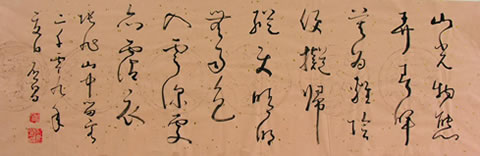 山光物態
弄春暉
莫為輕陰
便擬歸
縱使晴明
無雨色
入雲深處
亦霑衣
張旭山中留客
二千零九年
夏日